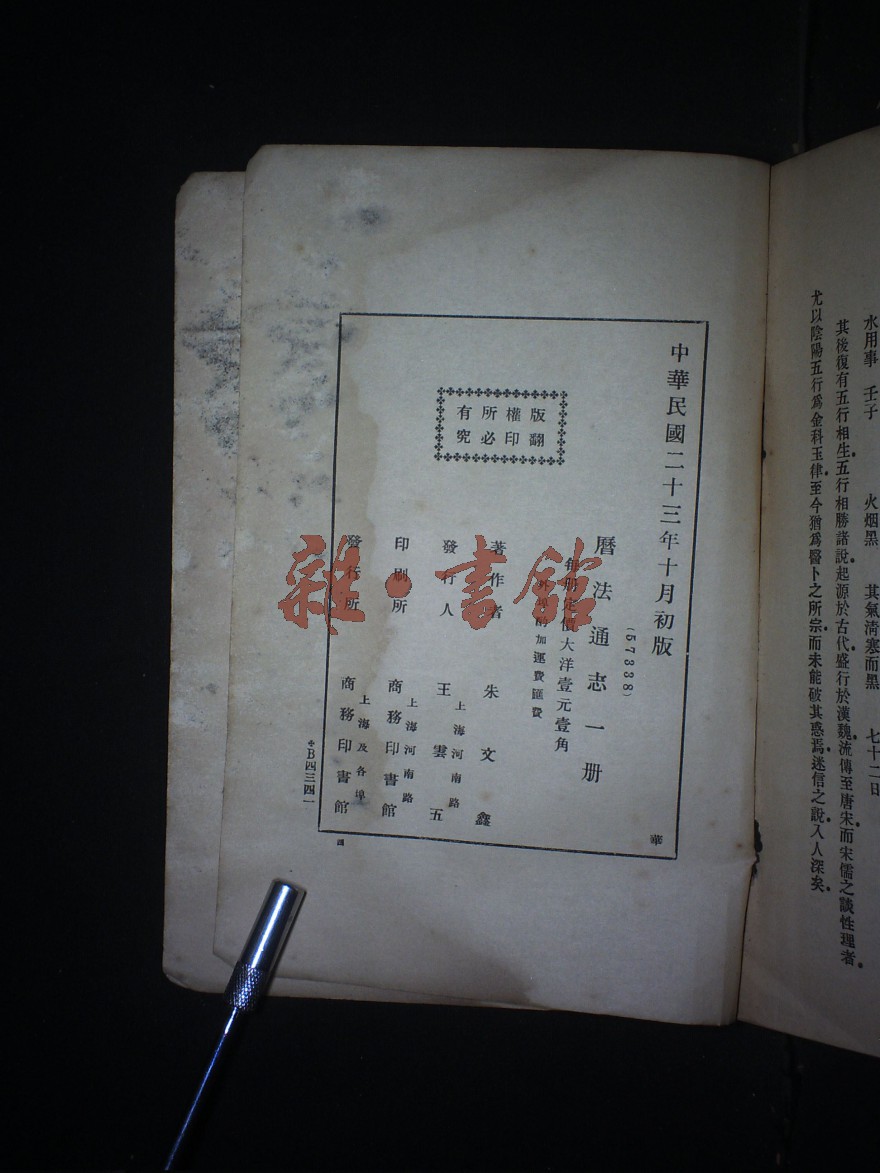 水用事　壬子　火烟黑　其氣淸寒而黑　七十二日
其後復有五行相生五行相勝諸說起源於古代盛行於漢魏流傳至唐宋而宋儒之談性理者
尤以陰陽五行爲金科玉律至今猶爲醫卜之所宗而未能破其惑焉迷信之說入人深矣
中華民國二十三年十月初版
(57338)
曆法通志一册
每册定價大洋壹元壹角
外埠酌加運費匯費
版權所有
翻印必究
著作者　朱文鑫
發行人　王雲五
上海河南路
印刷所　商務印書館
上海河南路
發行所　商務印書館
上海及各埠
華
B四三四一
雜·書館